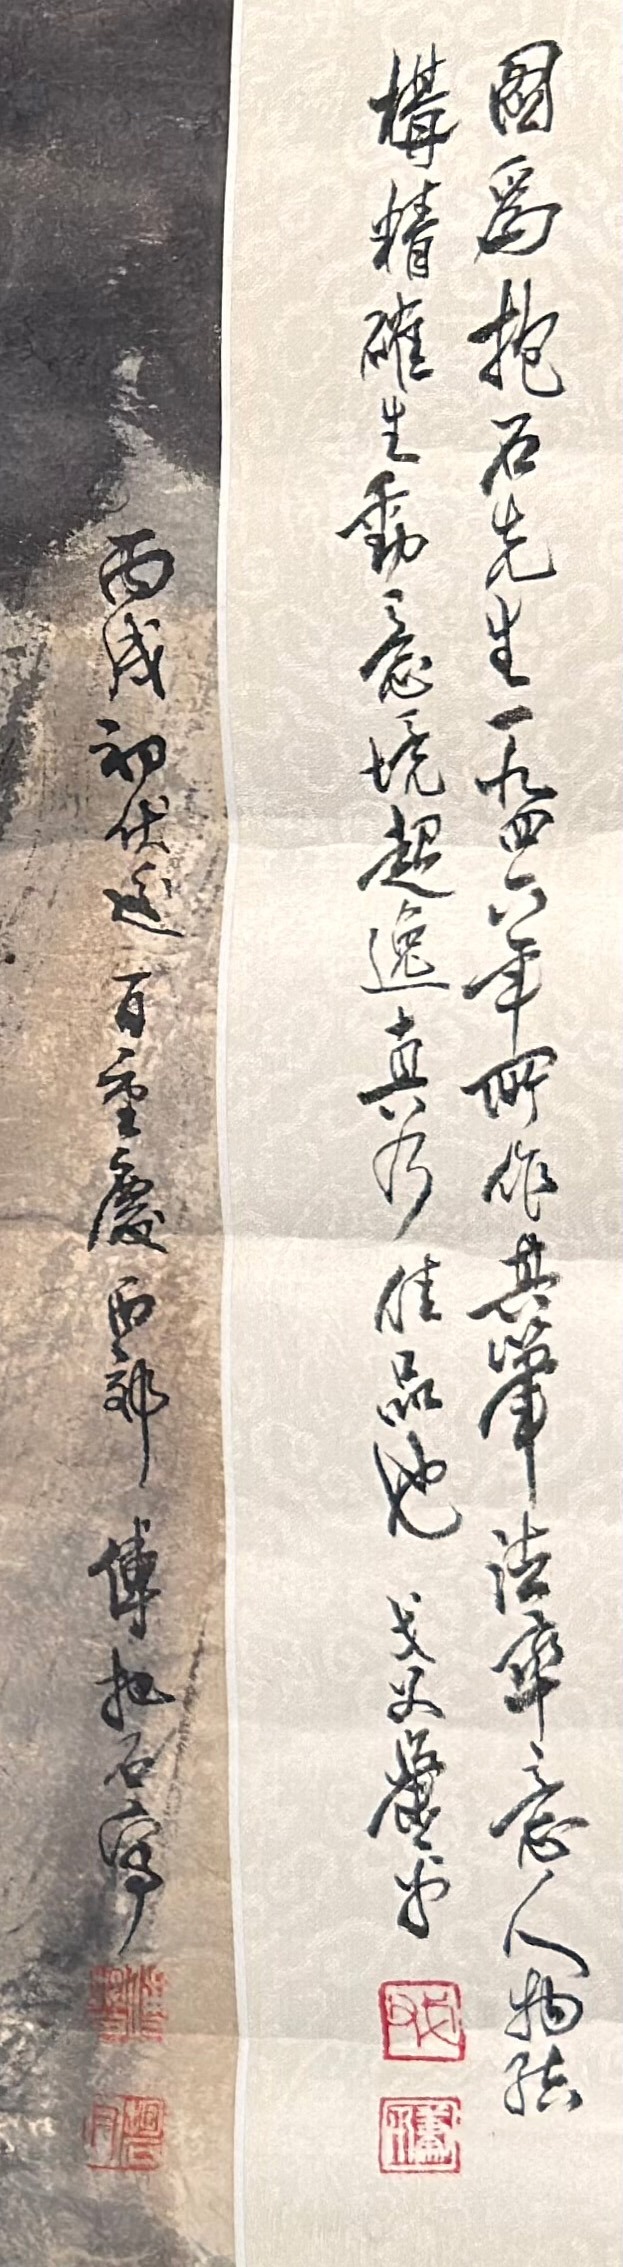 圖爲抱石先生一九四六年所作其筆法率意人物結
構精確生動意境超逸真乃佳品也
丙戌初伏 百 重慶西郊 傅抱石寫